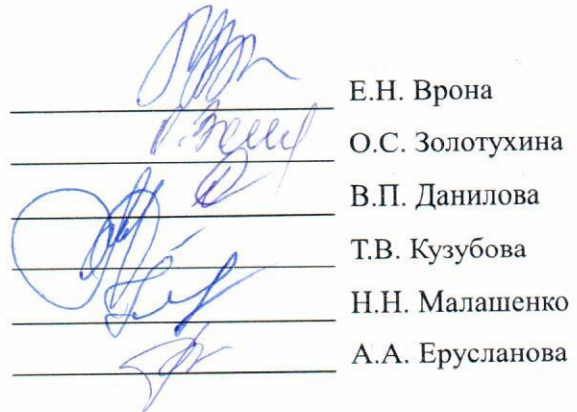 Е.Н. Врона
О.С. Золотухина
В.П. Данилова
Т.В. Кузубова
Н.Н. Малашенко
А.А. Ерусланова